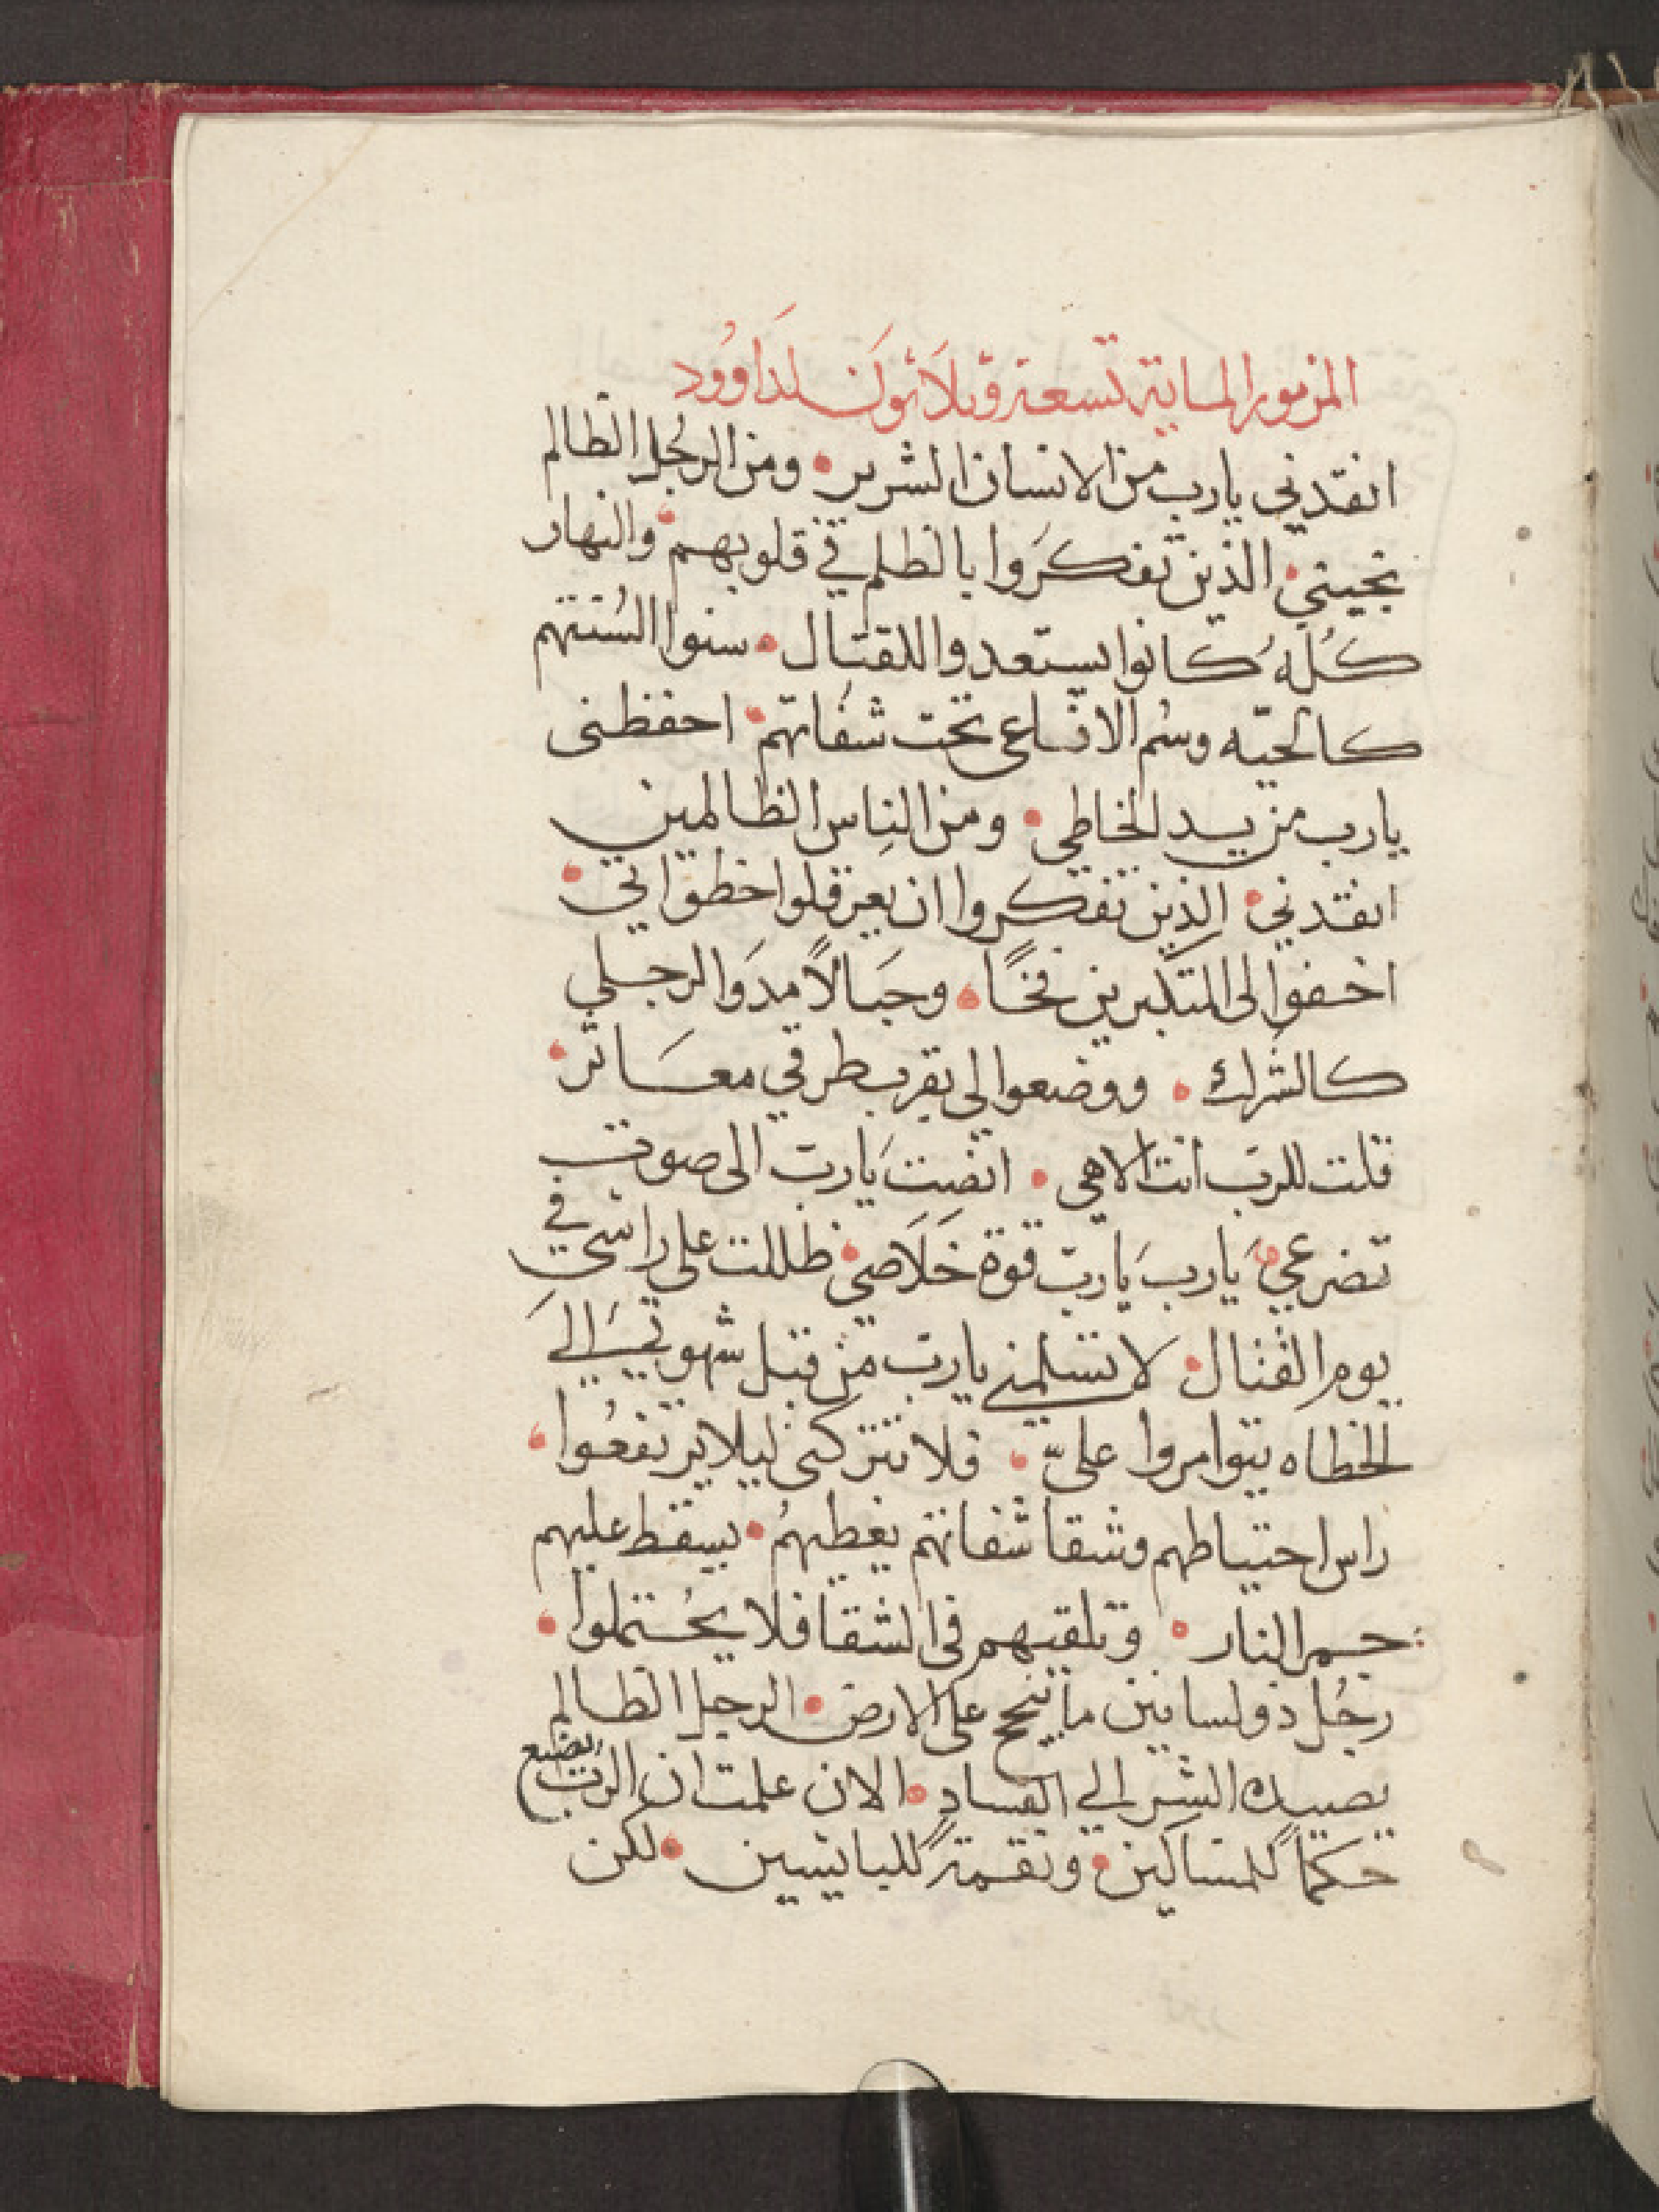 المزمور الماية تسعة وتلاثون لداوود
انقدني يارب من الانسان الشرير • ومن الرجل الظالم
نجيني • الذين تفكروا بالظلم في قلوبهم • والنهار
كله كانوا يستعدوا للقتال • سنوا السنتهم
كالحيّه وسم الافاعي تحت شفاتهم • احفظنى
يارب من يد الخاطي • ومن الناس الظالمين
انقدني • الذين تفكروا ان يعرقلوا خطواتي •
اخفوا لى المتكبرين فخاً • وحبالاً مدوا لرجلي
كالشرك • ووضعوا لي بقرب طرقي معاثر •
قلت للرب انت الاهى • انصت يارب الى صوت
تضرعي • يارب يارب قوة خلاصي • ظللت على راسي في
يوم القتال • لا تسلمني يارب من قبل شهوتي الى
الخطاه يتوامروا علىّ • فلا تتركنى ليلا يرتفعوا •
راس احتياطهم وشقا شفاتهم يغطيهم • يسقط عليهم
جمر النار • وتلقيهم في الشقا فلا يحتملوا •
رجل ذو لسانين ما ينجح على الارض • الرجل الظالم
تصيده الشر الي الفساد • الان علمت ان الرب يصنع
حكماً للمساكين • ونقمةً للبائسين • لكن